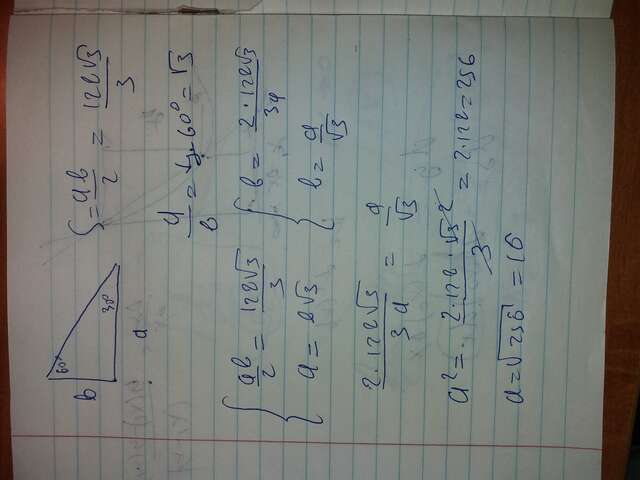 60°
30°
b
a
S = ab/2 = 128√3/3
a/b = tg 60° = √3
{ ab/2 = 128√3/3
a = b√3
{ b = 2·128√3/3a
b = a/√3
2·128√3/3a = a/√3
a² = 2·128·√3²/3 = 2·128 = 256
a = √256 = 16